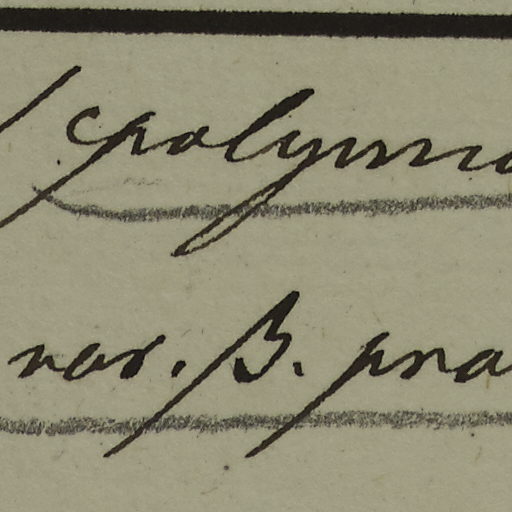 polymo
var. β. pra